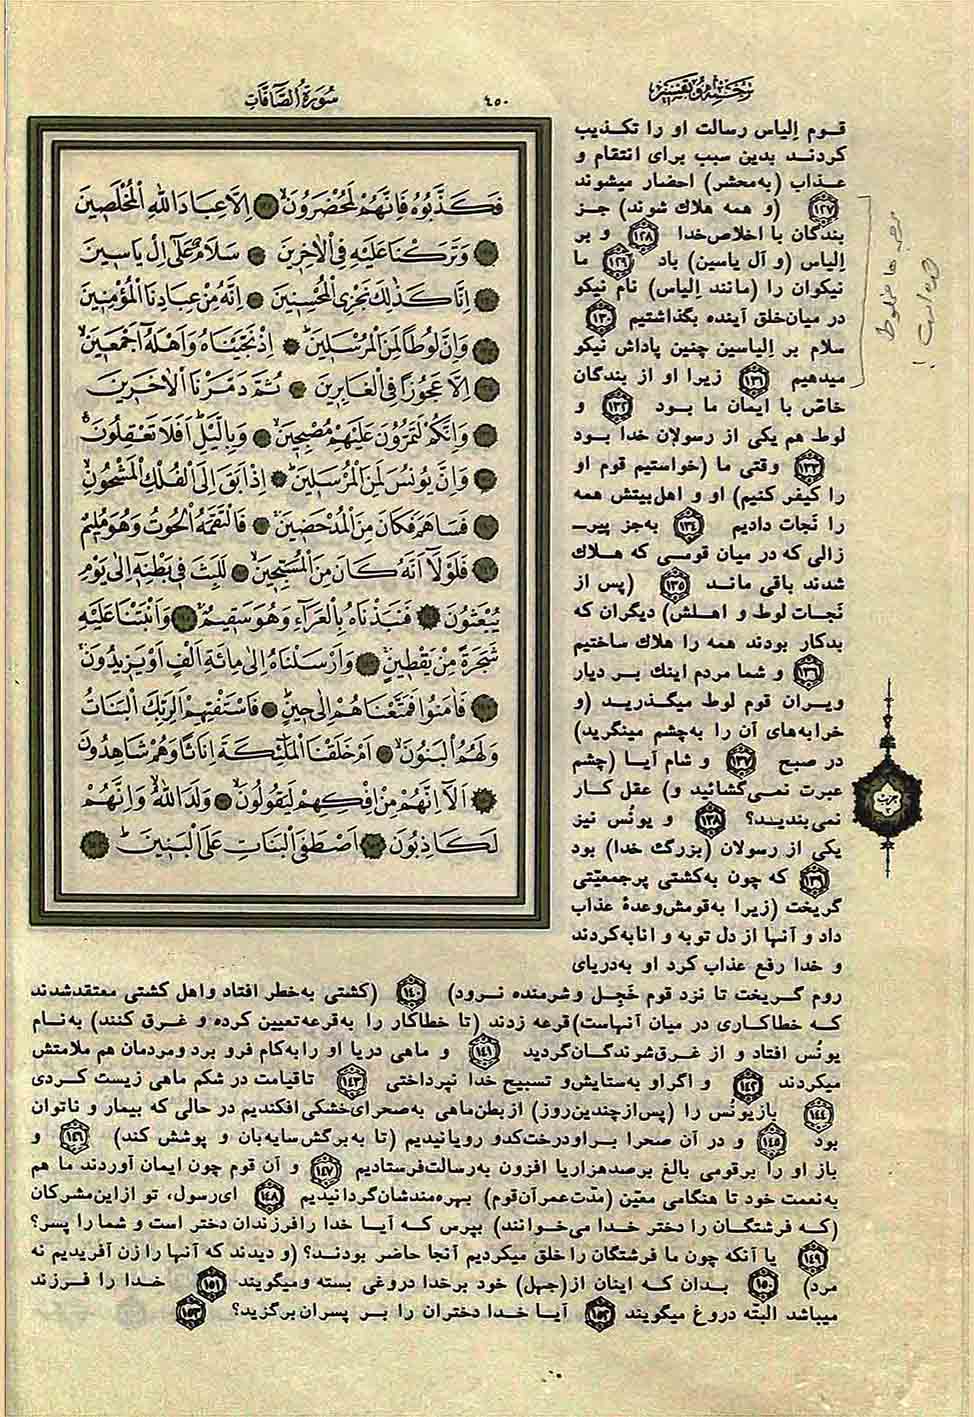 سُورَةُ الصَّافَّاتِ
٤٥٠
فَكَذَّبُوهُ فَاِنَّهُمْ لَمُحْضَرُونَ اِلَّا عِبَادَ اللّٰهِ الْمُخْلَصِينَ
وَتَرَكْنَا عَلَيْهِ فِى الْاٰخِرِينَ سَلَامٌ عَلٰٓى اِلْ يَاسِينَ
اِنَّا كَذٰلِكَ نَجْزِى الْمُحْسِنِينَ اِنَّهُ مِنْ عِبَادِنَا الْمُؤْمِنِينَ
وَاِنَّ لُوطًا لَمِنَ الْمُرْسَلِينَ اِذْ نَجَّيْنَاهُ وَاَهْلَهُٓ اَجْمَعِينَ
اِلَّا عَجُوزًا فِى الْغَابِرِينَ ثُمَّ دَمَّرْنَا الْاٰخَرِينَ
وَاِنَّكُمْ لَتَمُرُّونَ عَلَيْهِمْ مُصْبِحِينَ وَبِالَّيْلِ اَفَلَا تَعْقِلُونَ
وَاِنَّ يُونُسَ لَمِنَ الْمُرْسَلِينَ اِذْ اَبَقَ اِلَى الْفُلْكِ الْمَشْحُونِ
فَسَاهَمَ فَكَانَ مِنَ الْمُدْحَضِينَ فَالْتَقَمَهُ الْحُوتُ وَهُوَ مُلِيمٌ
فَلَوْلَآ اَنَّهُ كَانَ مِنَ الْمُسَبِّحِينَ لَلَبِثَ فِى بَطْنِهِٓ اِلٰى يَوْمِ
يُبْعَثُونَ فَنَبَذْنَاهُ بِالْعَرَآءِ وَهُوَ سَقِيمٌ وَاَنْبَتْنَا عَلَيْهِ
شَجَرَةً مِنْ يَقْطِينٍ وَاَرْسَلْنَاهُ اِلٰى مِائَةِ اَلْفٍ اَوْ يَزِيدُونَ
فَاٰمَنُوا فَمَتَّعْنَاهُمْ اِلٰى حِينٍ فَاسْتَفْتِهِمْ اَلِرَبِّكَ الْبَنَاتُ
وَلَهُمُ الْبَنُونَ اَمْ خَلَقْنَا الْمَلٰٓئِكَةَ اِنَاثًا وَهُمْ شَاهِدُونَ
اَلَآ اِنَّهُمْ مِنْ اِفْكِهِمْ لَيَقُولُونَ وَلَدَ اللّٰهُ وَاِنَّهُمْ
لَكَاذِبُونَ اَصْطَفَى الْبَنَاتِ عَلَى الْبَنِينَ
قوم اِلیاس رسالت او را تکذیب
کردند بدین سبب برای انتقام و
عذاب (به‌محشر) احضار میشوند
۱۲۷ (و همه هلاك شوند) جز
بندگان با اخلاص‌خدا ۱۲۸ و بر
اِلیاس (و آل یاسین) باد ۱۲۹ ما
نیکوان را (مانند اِلیاس) نام نیکو
در میان‌خلق آینده بگذاشتیم ۱۳۰
سلام بر اِلیاسین چنین پاداش نیکو
میدهیم ۱۳۱ زیرا او از بندگان
خاصّ با ایمان ما بود ۱۳۲ و
لوط هم یکی از رسولان خدا بود
۱۳۳ وقتی ما (خواستیم قوم او
را کیفر کنیم) او و اهل‌بیتش همه
را نَجات دادیم ۱۳٤ به‌جز پیر‌ـ
زالی که در میان قومی که هلاك
شدند باقی ماند ۱۳۵ (پس از
نَجات لوط و اهلش) دیگران که
بدکار بودند همه را هلاك ساختیم
۱۳۶ و شما مردم اینك بر دیار
ویران قوم لوط میگذرید (و
خرابه‌های آن را به‌چشم مینگرید)
در صبح ۱۳۷ و شام آیا (چشم
عبرت نمی‌گشائید و) عقل کار
نمی‌بندید؟ ۱۳۸ و یونُس نیز
یکی از رسولان (بزرگ خدا) بود
۱۳۹ که چون به‌کشتی پرجمعیّتی
گریخت (زیرا به‌قومش‌وعدهٔ عذاب
داد و آنها از دل توبه و انابه‌کردند
و خدا رفع عذاب کرد او به‌دریای
روم گریخت تا نزد قوم خَجِل و شرمنده نرود) ۱٤۰ (کشتی به‌خطر افتاد و اهل کشتی معتقدشدند
که خطاکاری در میان آنهاست) قرعه زدند (تا خطاکار را به‌قرعه‌تعیین کرده و غرق کنند) به‌نام
یونُس افتاد و از غرق‌شوندگان‌گردید ۱٤۱ و ماهی دریا او را به‌کام فرو برد و مردمان هم ملامتش
میکردند ۱٤۲ و اگر او به‌ستایش و تسبیح خدا نپرداختی ۱٤۳ تاقیامت در شکم ماهی زیست کردی
۱٤٤ باز یونُس را (پس‌از چندین‌روز) از بطن‌ماهی به‌صحرای‌خشکی افکندیم در حالی که بیمار و ناتوان
بود ۱٤۵ و در آن صحرا بر او درخت‌کدو رویانیدیم (تا به‌برگش سایه‌بان و پوشش کند) ۱٤۶ و
باز او را برقومی بالغ برصدهزار یا افزون به‌رسالت‌فرستادیم ۱٤۷ و آن قوم چون ایمان آوردند ما هم
به‌نعمت خود تا هنگامی معیّن (مدّت‌عمر آن‌قوم) بهره‌مندشان‌گردانیدیم ۱٤۸ ای‌رسول، تو از این‌مشرکان
(که فرشتگان را دختر خدا می‌خوانند) بپرس که آیا خدا را فرزندان دختر است و شما را پسر؟
۱٤۹ یا آنکه چون ما فرشتگان را خلق میکردیم آنجا حاضر بودند؟ (و دیدند که آنها را زن آفریدیم نه
مرد) ۱۵۰ بدان که اینان از (جهل) خود بر‌خدا دروغی بسته و میگویند ۱۵۱ خدا را فرزند
میباشد البتّه دروغ میگویند ۱۵۲ آیا خدا دختران را بر پسران برگزید؟ ۱۵۳